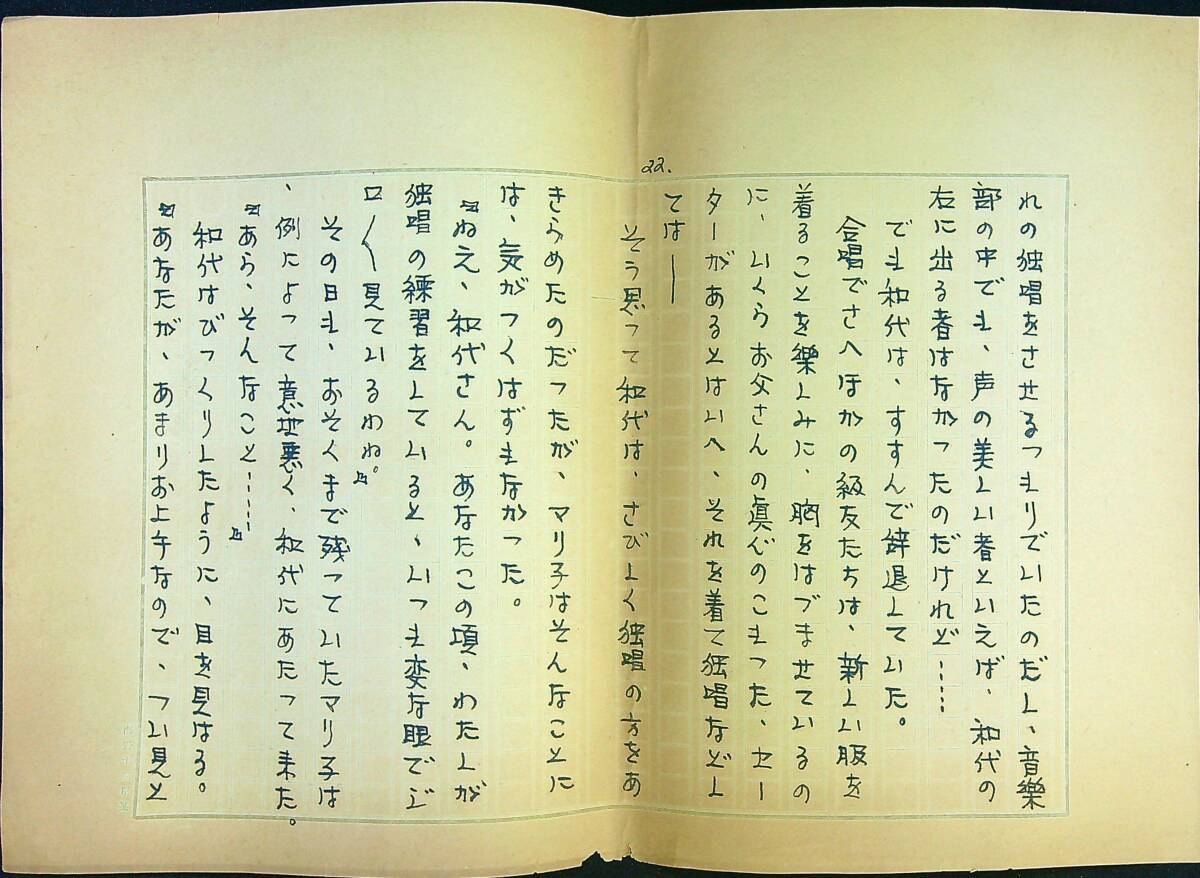 22.
れの独唱をさせるつもりでいたのだし、音樂
部の中でも、声の美しい者といえば、和代の
右に出る者はなかつたのだけれど……
でも和代は、すすんで辞退していた。
合唱でさへほかの級友たちは、新しい服を
着ることを樂しみに、胸をはづませているの
に、いくらお父さんの眞心のこもつた、セー
ターがあるとはいへ、それを着て独唱などし
ては――
そう思つて和代は、さびしく独唱の方をあ
きらめたのだつたが、マリ子はそんなことに
は、気がつくはずもなかつた。
『ねえ、和代さん。あなたこの頃、わたしが
独唱の練習をしていると、いつも変な眼でジ
ロ〱見ているわね。』
その日も、おそくまで残つていたマリ子は
、例によつて意地悪く、和代にあたつて来た。
『あら、そんなこと……』
和代はびつくりしたように、目を見はる。
『あなたが、あまりお上手なので、つい見と